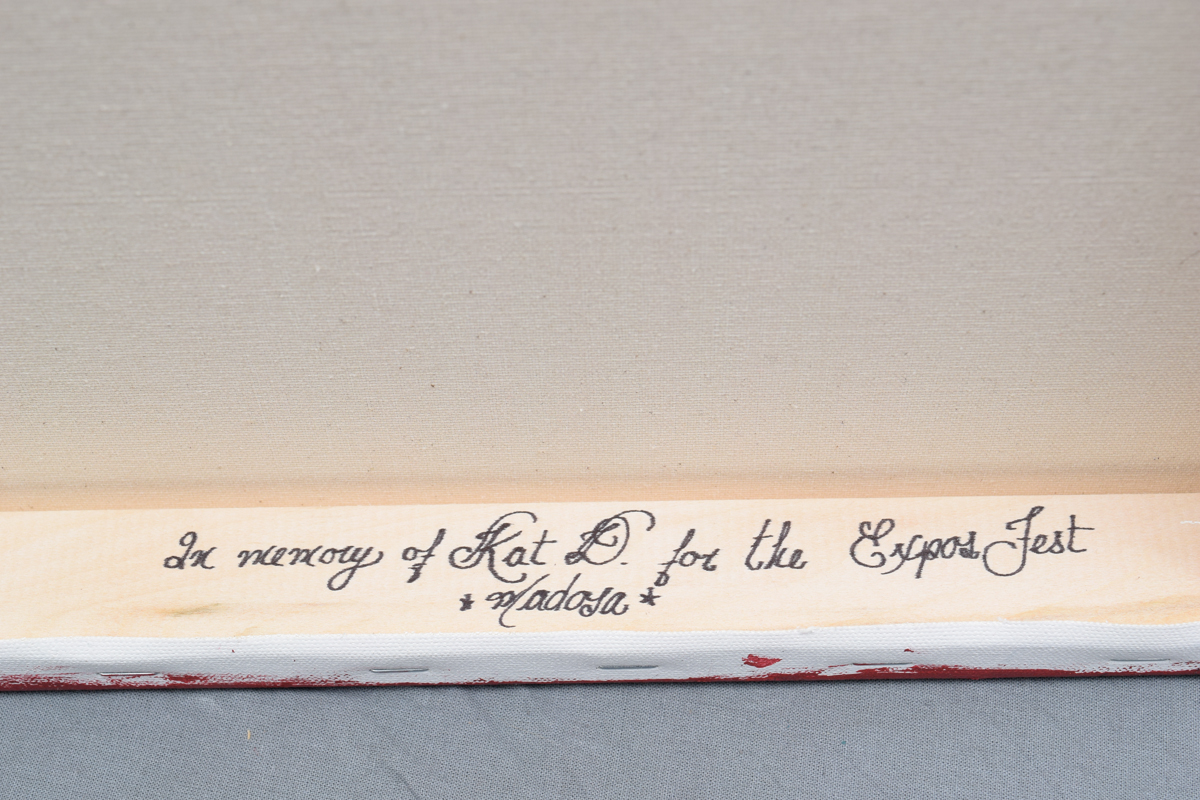 In memory of Kat D. for the Expos Fest
*Madosa*